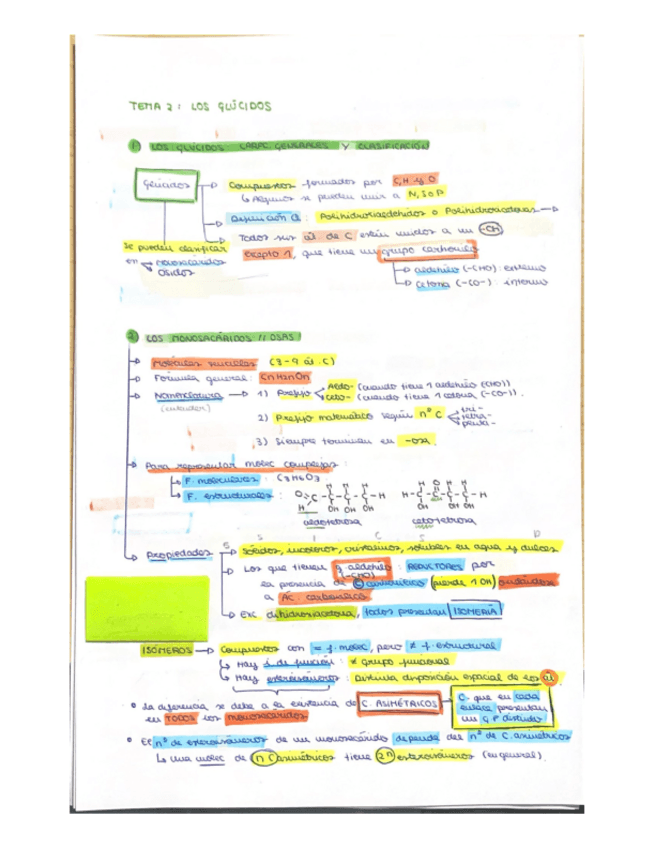 TEMA 2: LOS GLÚCIDOS
1) LOS GLÚCIDOS CARAC. GENERALES Y CLASIFICACIÓN
Glúcidos → Compuestos formados por C, H y O
↳ Algunos se pueden unir a N, S o P
→ Definición Q: Polihidroxialdehídos o Polihidroxicetonas →
→ Todos sus át. de C están unidos a un -OH
excepto 1, que tiene un grupo carbonilo
Se pueden clasificar
en monosacáridos
Ósidos
→ aldehído (-CHO): extremo
→ cetona (-CO-): interno
2) LOS MONOSACÁRIDOS // OSAS /
→ Moléculas sencillas (3-9 át. C)
→ Fórmula general: CnH2nOn
→ Nomenclatura → 1) Prefijo Aldo- (cuando tiene 1 aldehído (CHO))
Ceto- (cuando tiene 1 cetona (-CO-)).
2) Prefijo matemático según nº C tri-
tetra-
penta-
3) Siempre terminan en -osa.
→ Para representar molec complejas:
→ F. moleculares:
→ F. estructurales:
aldotetrosa cetotetrosa
→ Propiedades → Sólidos, incoloros, cristalinos, solubles en agua y dulces
→ Los que tienen 1 aldehído (-CHO): REDUCTORES por
la presencia de C carbonílico (pierde 1 OH) oxidándose
a Ác. carboxílico
→ Exc. dihidroxiacetona, todos presentan ISOMERÍA
ISÓMEROS → Compuestos con = f. molec, pero ≠ f. estructural
↳ Hay i. de función: ≠ grupo funcional
↳ Hay estereoisómeros: Distinta disposición espacial de los át.
• La diferencia se debe a la existencia de C ASIMÉTRICOS
en TODOS los monosacáridos
C. que en cada
enlace presentan
un G.F distinto
• El nº de estereoisómeros de un monosacárido depende del nº de C. asimétricos
↳ una molec de n C asimétricos tiene 2n estereoisómeros (en general).